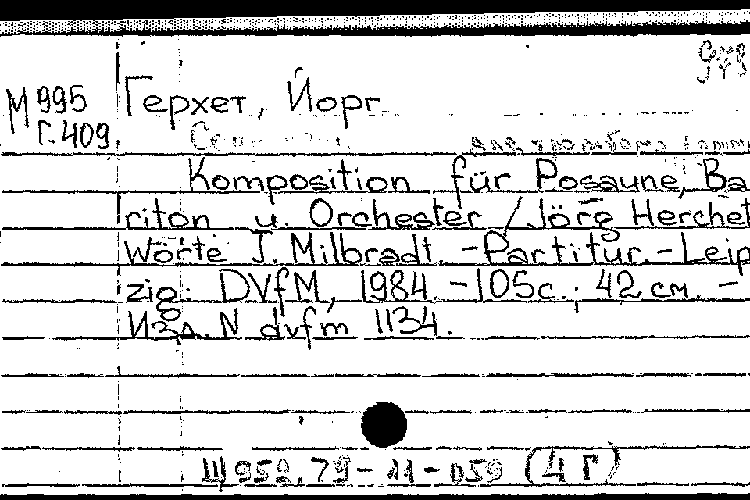 М 995 Герхет, Йорг
Г. 409
Komposition für Posaune, Ba
riton u. Orchester / Jörg Herchet
Worte J. Milbradt. - Partitur. - Leip
zig: DVfM, 1984. - 105 с.; 42 см. -
Изд. N dvfm 1134.
Щ 959.79-11-059 (4 Г)